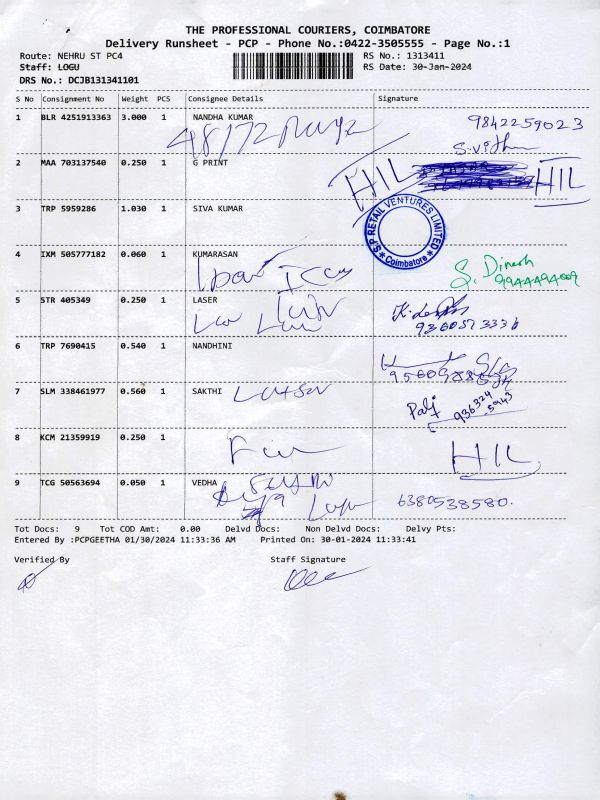 THE PROFESSIONAL COURIERS, COIMBATORE
Delivery Runsheet - PCP - Phone No.:0422-3505555 - Page No.:1
Route: NEHRU ST PC4 RS No.: 1313411
Staff: LOGU RS Date: 30-Jan-2024
DRS No.: DCJB131341101
S No Consignment No Weight PCS Consignee Details Signature
1 BLR 4251913363 3.000 1 NANDHA KUMAR 9842259023
2 MAA 703137540 0.250 1 G PRINT HIL HIL
3 TRP 5959286 1.030 1 SIVA KUMAR
S.P RETAIL VENTURES LIMITED
* Coimbatore *
4 IXM 505777182 0.060 1 KUMARASAN S. Dinesh
5 STR 405349 0.250 1 LASER
6 TRP 7690415 0.540 1 NANDHINI
7 SLM 338461977 0.560 1 SAKTHI
936324
5943
8 KCM 21359919 0.250 1 HIL
9 TCG 50563694 0.050 1 VEDHA 6380538580.
Tot Docs: 9 Tot COD Amt: 0.00 Delvd Docs: Non Delvd Docs: Delvy Pts:
Entered By :PCPGEETHA 01/30/2024 11:33:36 AM Printed On: 30-01-2024 11:33:41
Verified By Staff Signature